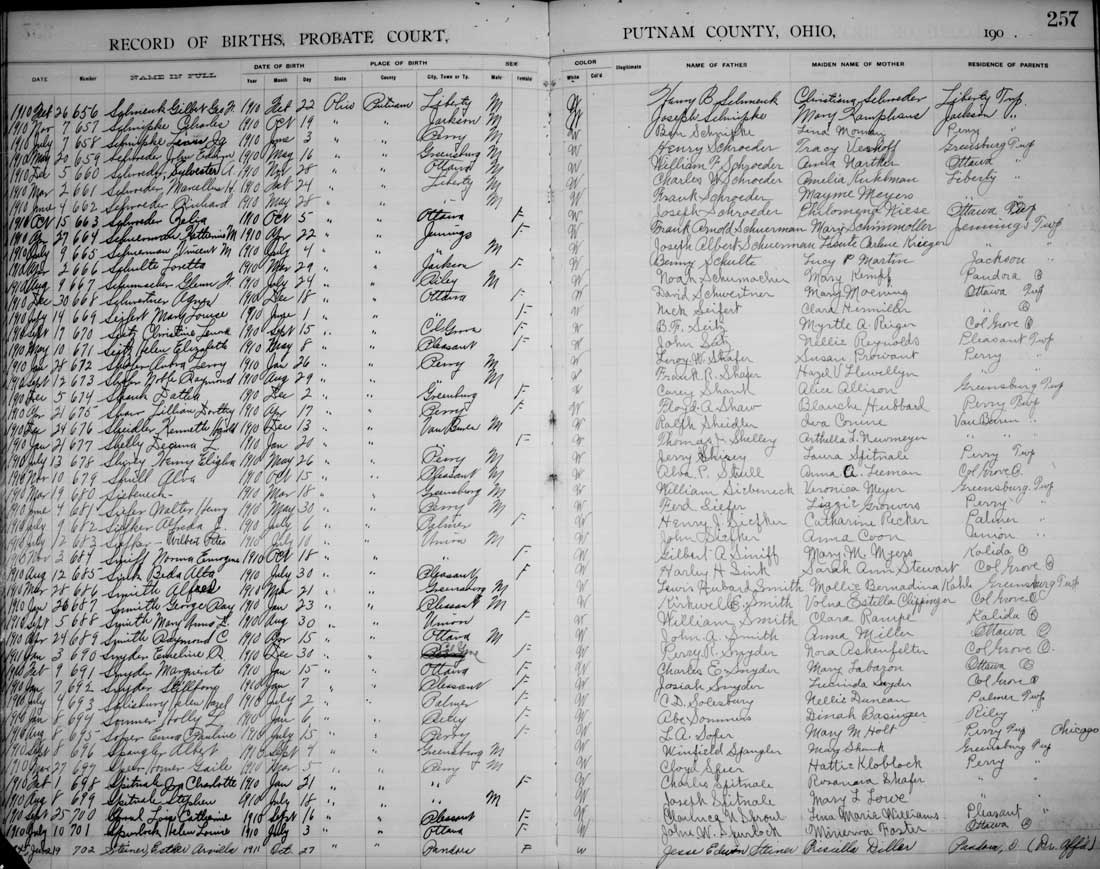 257
RECORD OF BIRTHS, PROBATE COURT, PUTNAM COUNTY, OHIO, 190
DATE OF BIRTH PLACE OF BIRTH SEX COLOR
DATE Number NAME IN FULL Year Month Day State County City, Town or Tp. Male Female White Col'd. Illegitimate NAME OF FATHER MAIDEN NAME OF MOTHER RESIDENCE OF PARENTS
26 656 Schmenk Gilbert Geo H. 1910 22 Ohio Putnam Liberty M W Henry B Schmenk Christina Schroder Liberty Twp.
1910 Nov 7 657 Schnipke Charles 1910 Oct 19 " " Jackson M W Joseph Schnipke Mary Kamphaus Jackson "
1910 July 7 658 Schnipke 1910 June 3 " " Perry M W Ben Schnipke Lina Perry "
1910 May 20 659 Schroeder John 1910 May 16 " " Greensburg M W Henry Schroeder Tracy Verhoff Greensburg Twp
1910 Dec 5 660 Schroeder, Sylvester A. 1910 Nov 28 " " Ottawa M W William F. Schroeder Ottawa "
1910 Nov 2 661 Schroeder Marcellus H. 1910 Oct 24 " " Liberty M W Charles W Schroeder Amelia Kirkman Liberty "
1910 June 4 662 Schroeder Richard 1910 May 28 " " " M W Frank Schroeder Mayme Meyers " "
1910 Oct 15 663 Schroeder Relva 1910 Oct 5 " " Ottawa F W Joseph Schroeder Philomena Wiese Ottawa Twp
1910 Apr 27 664 Schuerman M 1910 Apr 22 " " Jennings F W Frank Arnold Schuerman Mary Schimmoller Jennings Twp
1910 July 9 665 Schuerman Vincent M 1910 July 4 " " " M W Joseph Albert Schuerman Arlene Krieger " "
1910 Apr 2 666 Schulte Loretta 1910 Mar 29 " " Jackson F W Benny Schulte Lucy P Martin Jackson "
1910 Aug 9 667 Schumacher Glenn H. 1910 July 24 " " Riley M W Noah Schumacher Mary Kempf Pandora O
1910 Dec 30 668 Schwertner Agnes 1910 Dec 18 " " Ottawa F W David Schwertner Mary Moening Ottawa Twp
1910 July 14 669 Seifert Mary Louise 1910 June 1 " " " F W Nick Seifert Clara Hermiller " O
1910 Sept 19 670 Seitz Christine 1910 Sept 15 " " Col Grove F W B.F. Seitz Myrtle A Riger Col Grove O
1910 May 10 671 Seitz Helen Elizabeth 1910 May 8 " " Pleasant F W John Seitz Nellie Reynolds Pleasant Twp
1910 Jan 28 672 Shafer Leroy 1910 Jan 26 " " Perry M W Leroy W. Shafer Susan Prowant Perry "
1910 Sept 12 673 Shafer Noble Raymond 1910 Aug 29 " " " M W Frank R. Shafer Hazel V Llewellyn " "
1910 Dec 5 674 Shank 1910 Dec 2 " " Greensburg F W Carey Shank Alice Allison Greensburg Twp
1910 Apr 21 675 Shaw Lillian Dorthy 1910 Apr 17 " " Perry F W Floyd A Shaw Blanche Hubbard Perry Twp
1910 Dec 24 676 Sheidler Kenneth 1910 Dec 13 " " Van Buren M W Ralph Sheidler Iva Conine Van Buren "
1910 Jan 21 677 Shelly L 1910 Jan 20 " " " F W Thomas J Shelley Arthella L. Newmeyer " "
1910 July 13 678 Shirey Henry 1910 May 26 " " Perry M W Jerry Shirey Laura Spitnale Perry Twp
1910 Nov 10 679 Shull Alva 1910 Oct 15 " " Pleasant M W Alva P. Shull Anna A. Leeman Col Grove O
1910 Mar 19 680 Siebeneck 1910 Mar 18 " " Greensburg M W William Siebeneck Veronica Meyer Greensburg Twp.
1910 June 4 681 Siefer Walter Henry 1910 May 30 " " Perry M W Ferd Siefer Lizzie Perry "
1910 July 9 682 Siefker Alfreda 1910 July 6 " " Palmer F W Henry J. Siefker Catharine Recker Palmer "
1910 July 12 683 Siefker Wilbert Peter 1910 July 10 " " Union M W John Siefker Anna Coon Union "
1910 Nov 3 684 Siniff Norma Emogene 1910 Oct 18 " " " F W Gilbert A. Siniff Mary M. Myers Kalida O
1910 Aug 12 685 Sink Beda Alta 1910 July 30 " " Pleasant F W Harley H. Sink Sarah Ann Stewart Col Grove O
1910 Mar 28 686 Smith Alfred 1910 Mar 21 " " Greensburg M W Lewis Hubard Smith Mollie Bernadina Kahle Greensburg Twp
1910 Jan 26 687 Smith George Ray 1910 Jan 23 " " Pleasant M W Kirkwell E. Smith Volna Estella Clippinger Col Grove O
1910 Sept 5 688 Smith Mary 1910 Aug 30 " " Union F W William Smith Clara Rampe Kalida O
1910 Apr 24 689 Smith Raymond C. 1910 Apr 15 " " Ottawa M W John A. Smith Anna Miller Ottawa O
1911 Jan 3 690 Snyder Emeline R. 1910 Dec 30 " " Col Grove F W Perry R. Snyder Nora Ashenfelter Col Grove O.
1910 Feb 9 691 Snyder Marguerite 1910 Jan 15 " " Ottawa F W Charles E Snyder Mary Labazon Ottawa O
1910 Jan 7 692 Snyder 1910 Jan 7 " " Pleasant F W Josiah Snyder Lucinda Snyder Col Grove O
1910 July 4 693 Solesbury Helen Hazel 1910 July 2 " " Palmer F W C.D. Solesbury Nellie Duncan Palmer Twp
1910 Jan 8 694 Sommer Holly L 1910 Jan 6 " " Riley F W Abe Sommers Dinah Basinger Riley
1910 Aug 8 695 Sofer Emma 1910 July 15 " " Perry F W L.A. Sofer Mary M Holt Perry Twp Chicago
1910 Sept 8 696 Spangler Albert 1910 Sept 4 " " Greensburg M W Winfield Spangler Mary Shank Greensburg Twp
1910 Mar 27 697 Speer Homer 1910 Mar 5 " " Perry M W Cloyd Speer Hattie Kloblock Perry "
1910 Feb 1 698 Spitnale Charlotte 1910 Jan 21 " " " F W Charles Spitnale Rosanora Shafer " "
1910 Aug 8 699 Spitnale Stephen 1910 July 18 " " " M W Joseph Spitnale Mary L Lowe " "
1910 Sept 25 700 Sproul Catherine 1910 Sept 16 " " Pleasant F W Clarence N Sproul Lina Marie Williams Pleasant "
1910 July 10 701 Spurlock Helen Louise 1910 July 3 " " Ottawa F W John W. Spurlock Minerva Foster Ottawa O
19 702 Steiner, Esther Arvilla 1911 Oct. 27 " " Pandora F W Jesse Edwin Steiner Priscilla Diller Pandora, O